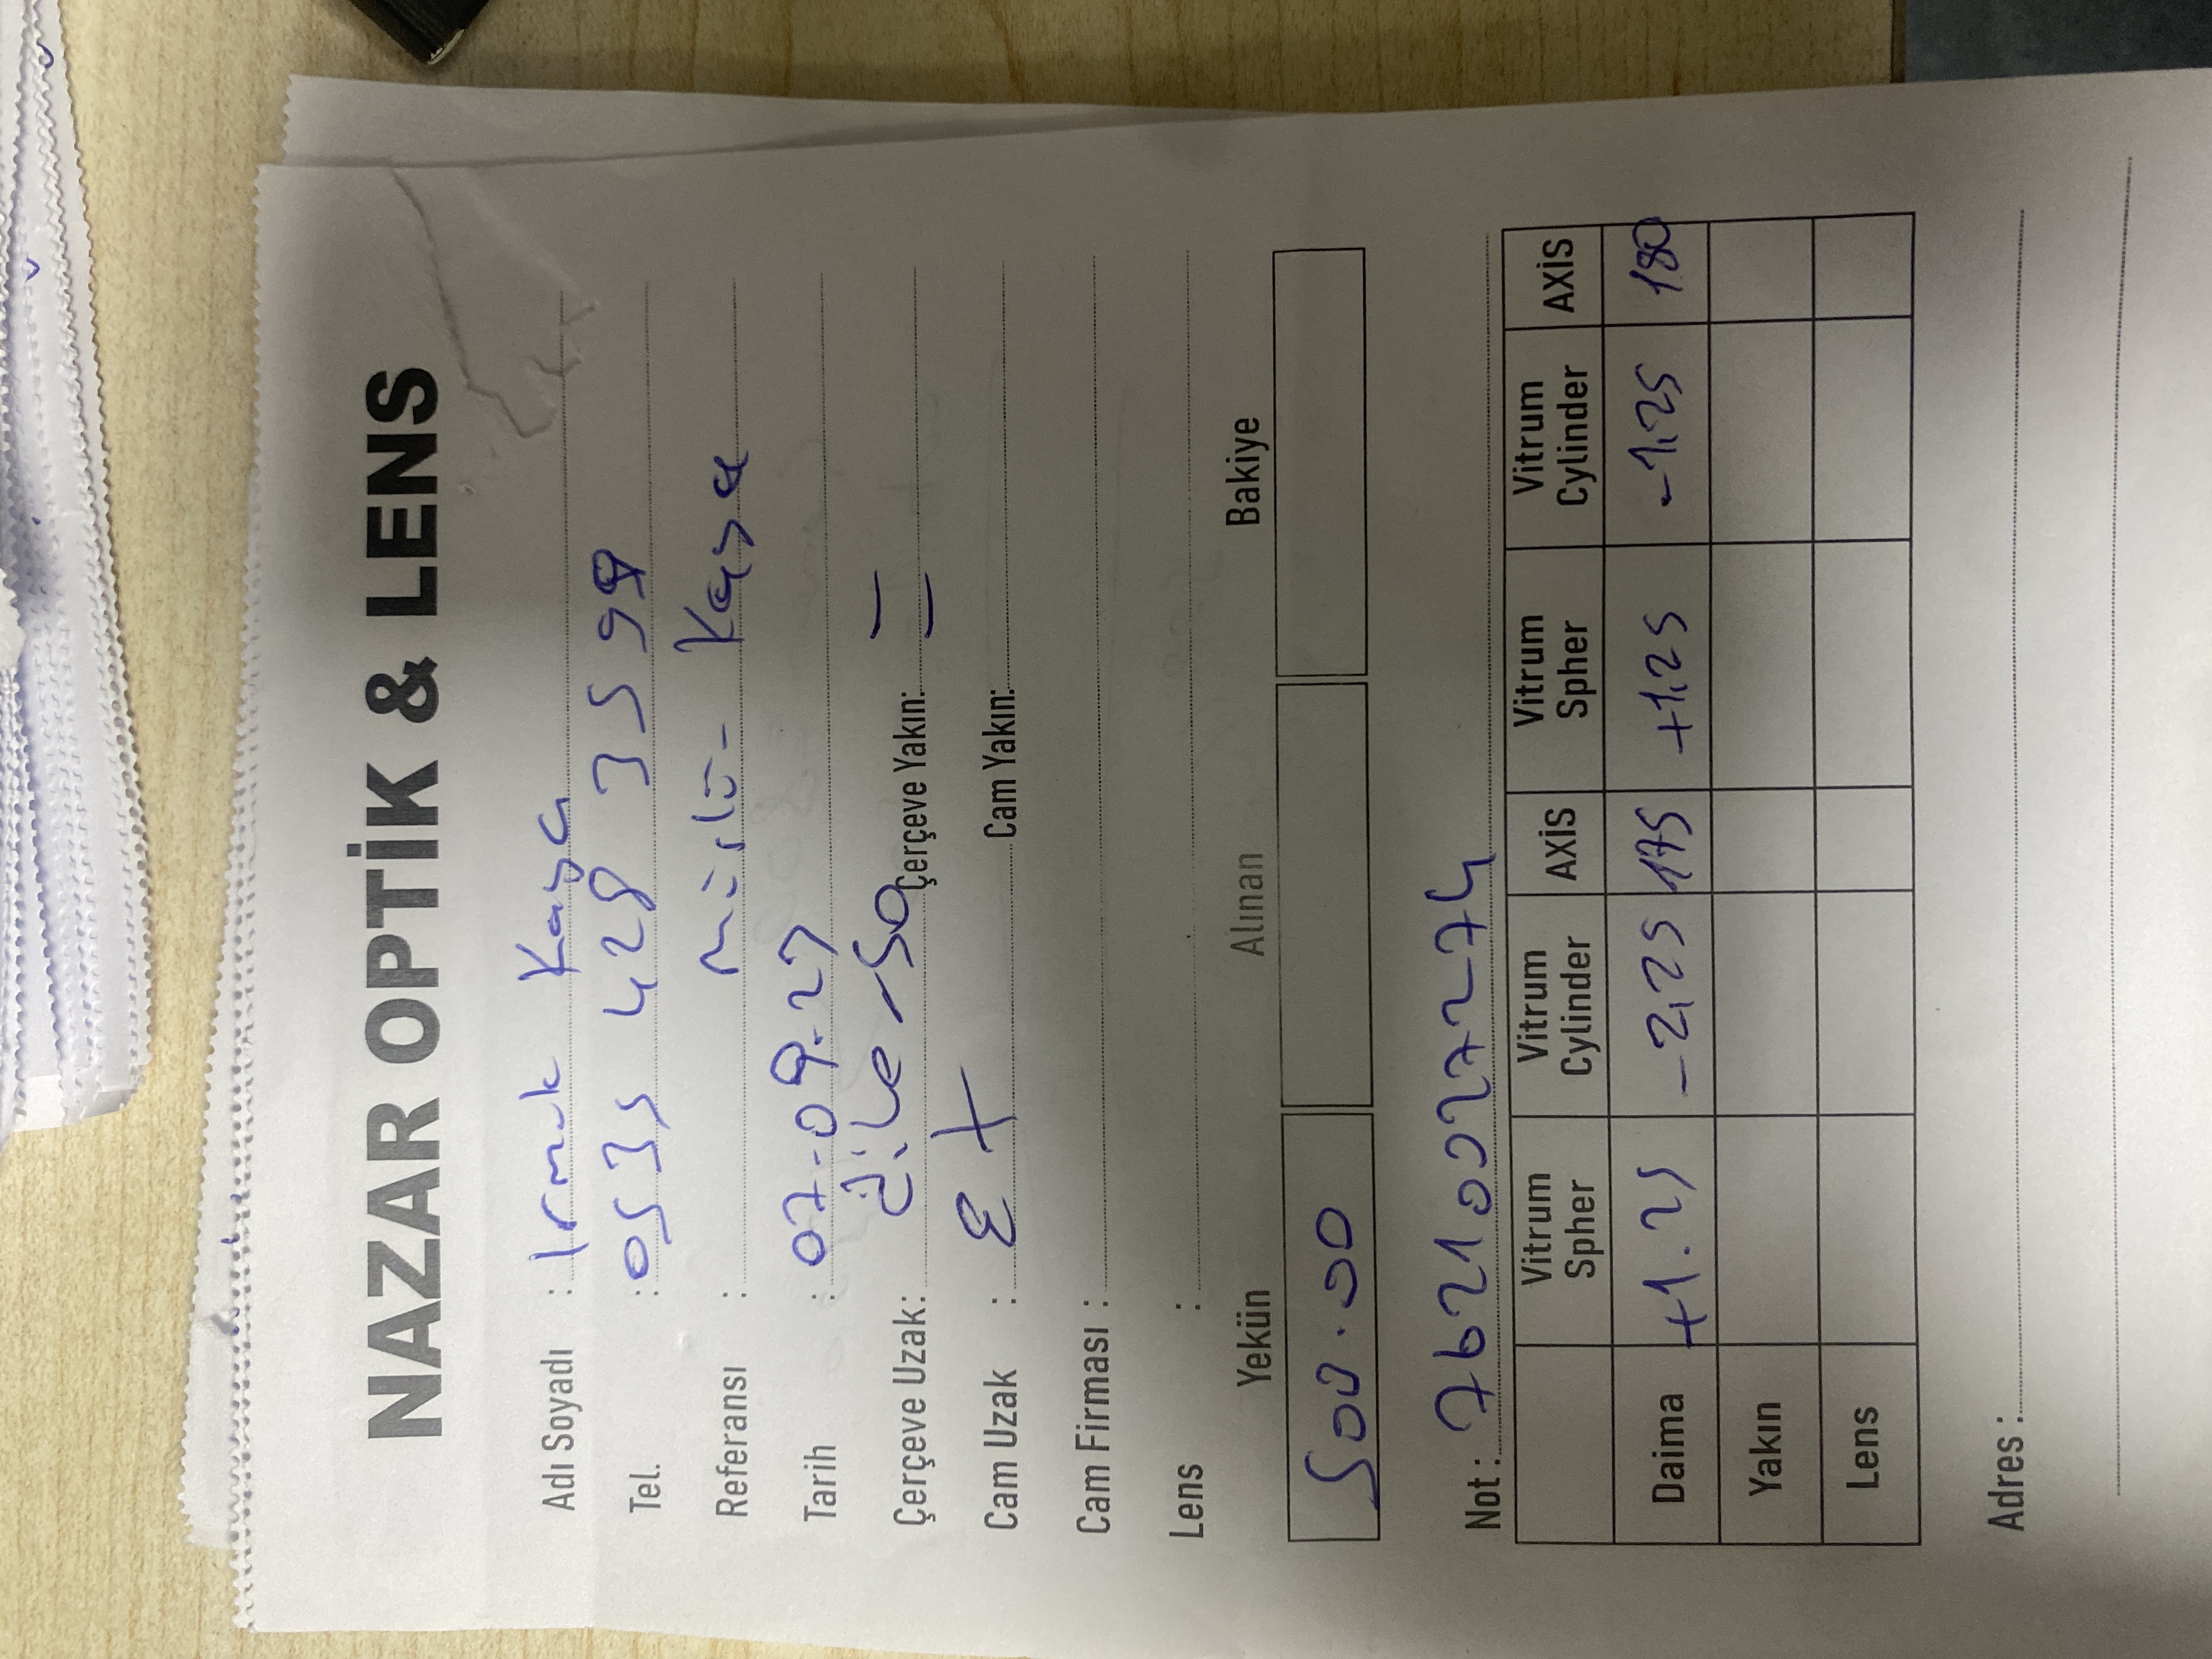 NAZAR OPTİK & LENS
Adı Soyadı : Irmak Kaya
Tel. : 0535 428 35 99
Referansı : Kaya
Tarih : 07-09-23
Çerçeve Uzak: Çerçeve Yakın: =
Cam Uzak : Cam Yakın:
Cam Firması :
Lens :
Yekün Alınan Bakiye
500.00
Not : 76210027274
Vitrum Spher Vitrum Cylinder AXİS Vitrum Spher Vitrum Cylinder AXİS
Daima +1.25 -2,25 175 +1,25 -1,25 180
Yakın
Lens
Adres :